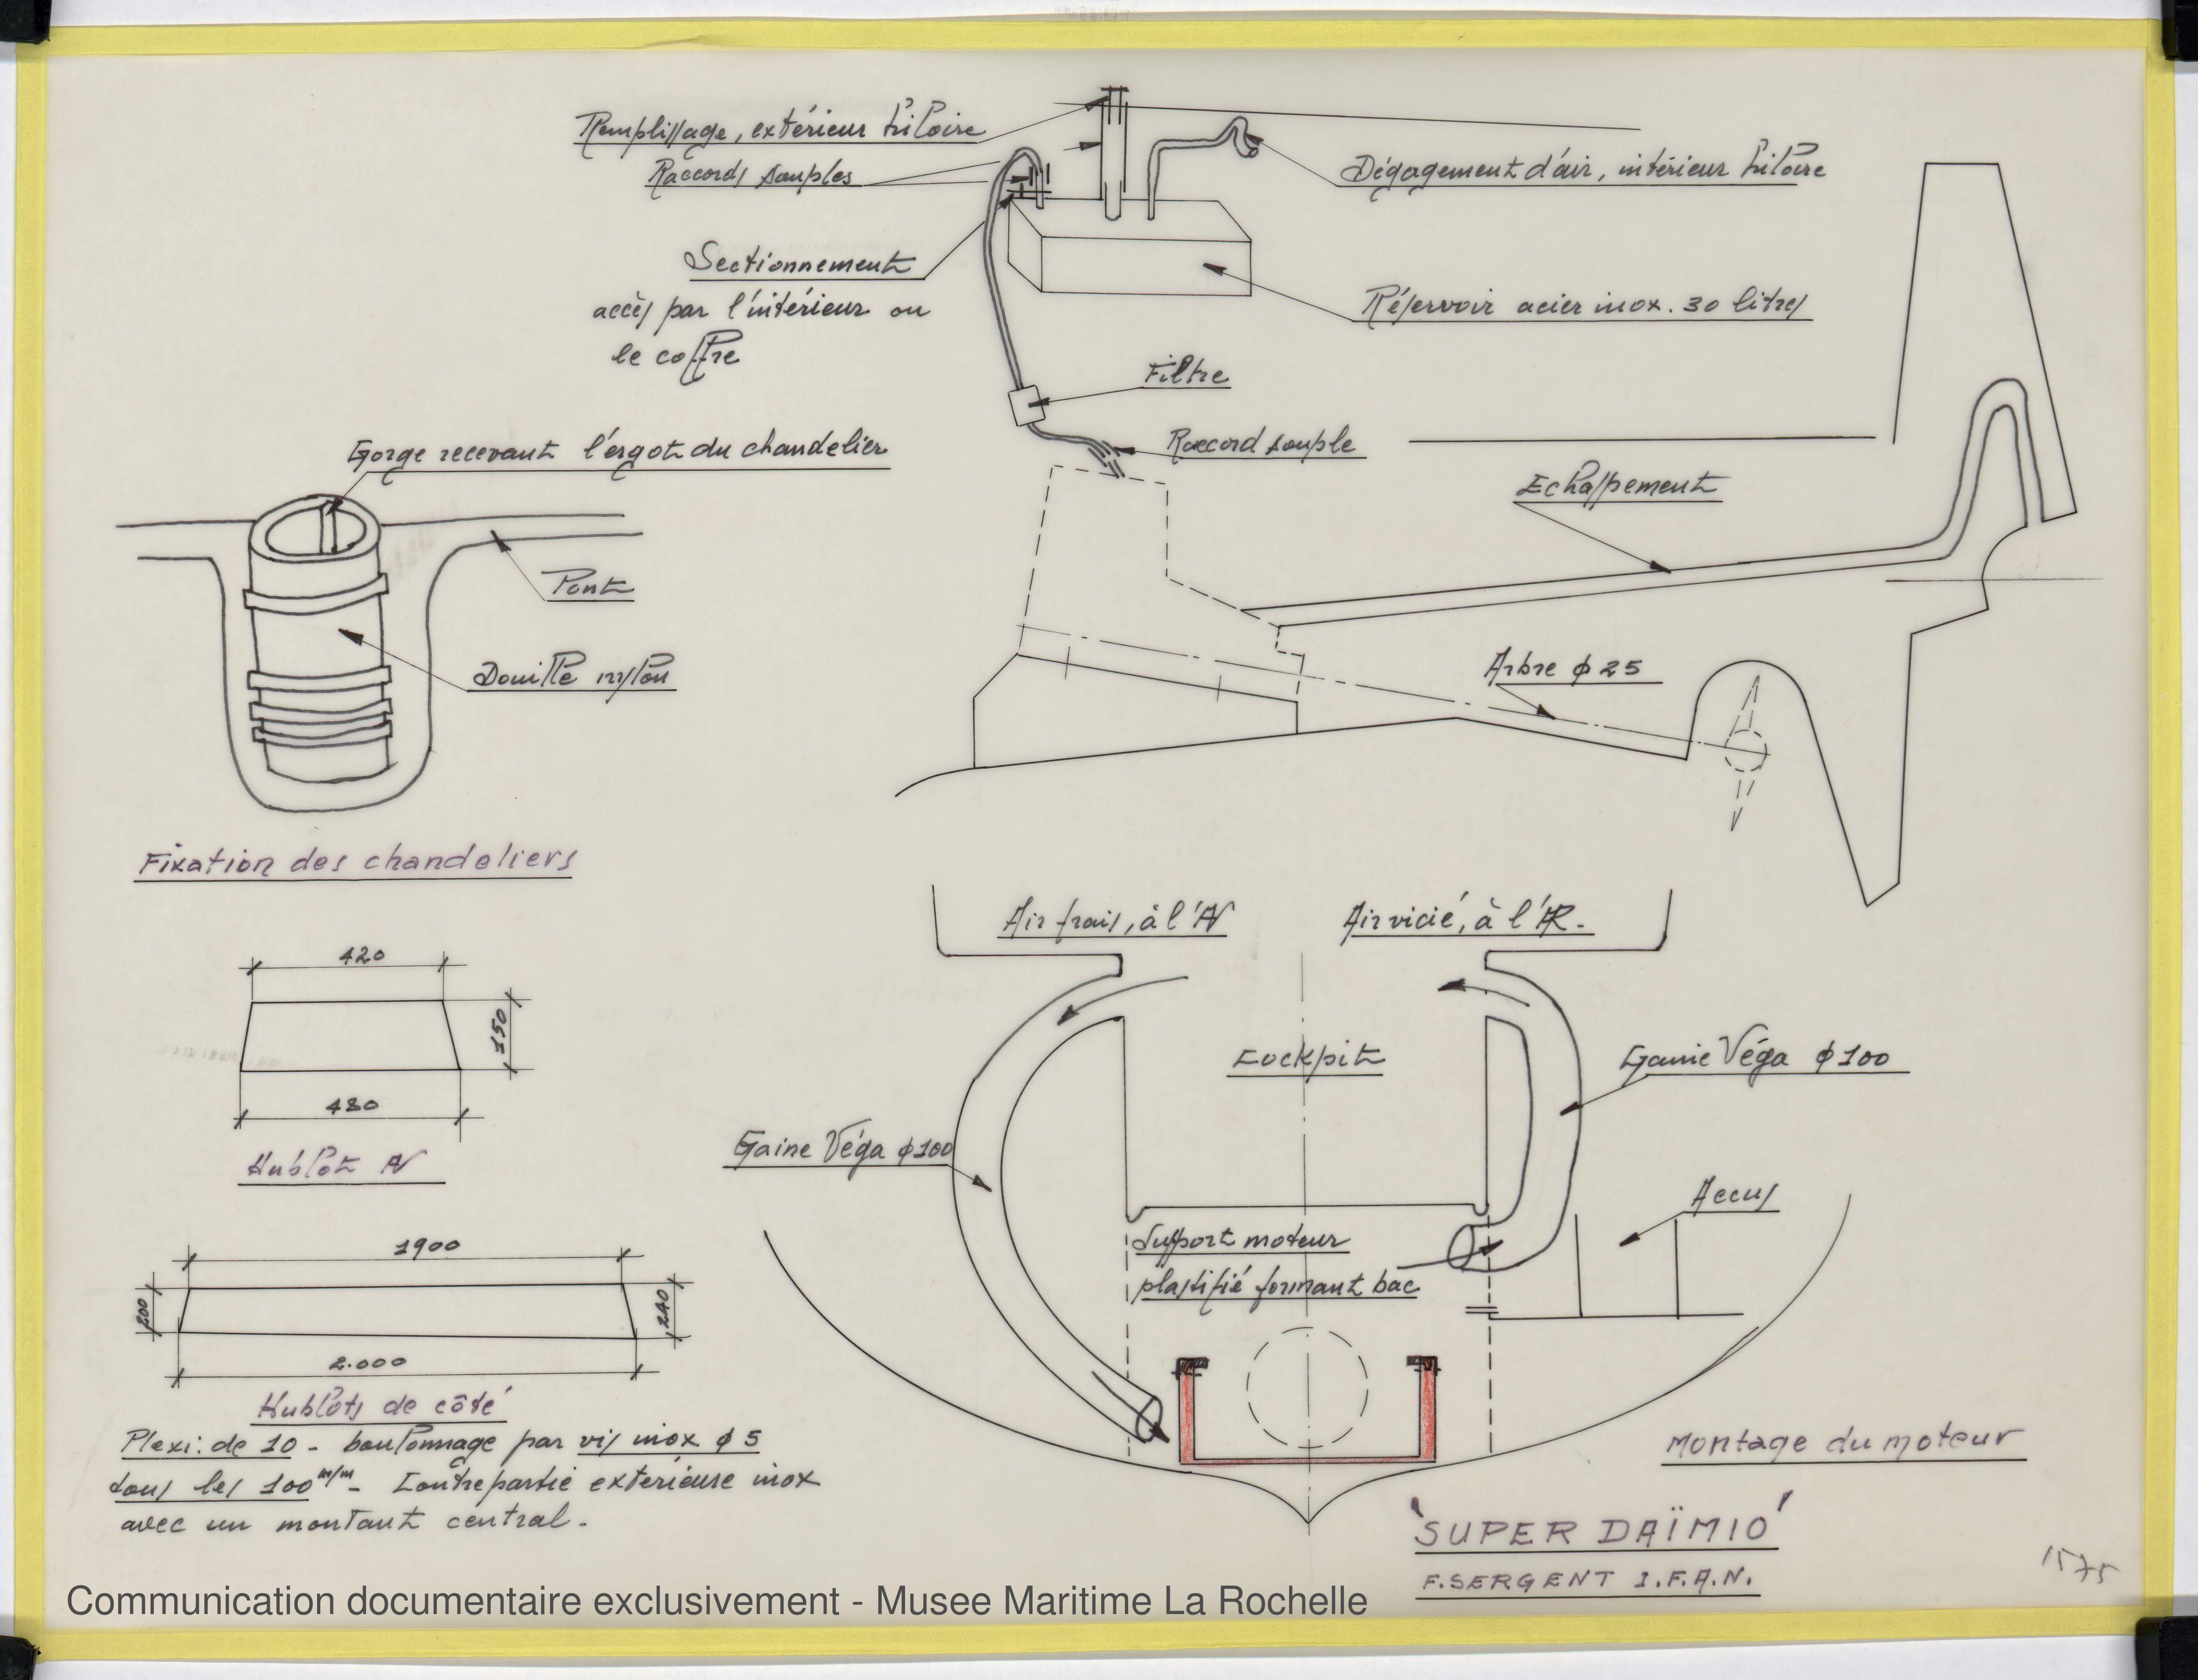 Remplissage, extérieur hiloire
Raccords souples
Dégagement d'air, intérieur hiloire
Sectionnement
accès par l'intérieur ou
le coffre
Réservoir acier inox. 30 litres
Filtre
Raccord souple
Gorge recevant l'ergot du chandelier
Echappement
Pont
Douille nylon
Arbre ϕ 25
Fixation des chandeliers
Air frais, à l'AV
Air vicié, à l'AR.
420
150
480
Hublot AV
Cockpit
Gaine Véga ϕ 100
Gaine Véga ϕ100
Accus
Support moteur
plastifié formant bac
1900
200
240
2.000
Hublots de côté
Plexi: de 10 - boulonnage par vis inox ϕ 5
tous les 100 m/m - Contrepartie extérieure inox
avec un montant central.
Montage du moteur
'SUPER DAÏMIO'
F.SERGENT I.F.A.N.
1575
Communication documentaire exclusivement - Musee Maritime La Rochelle